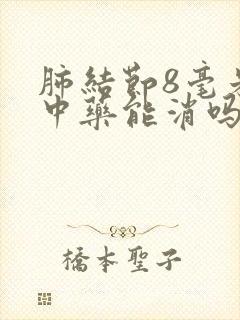 肺結節8毫米
中藥能消吗
橋本聖子